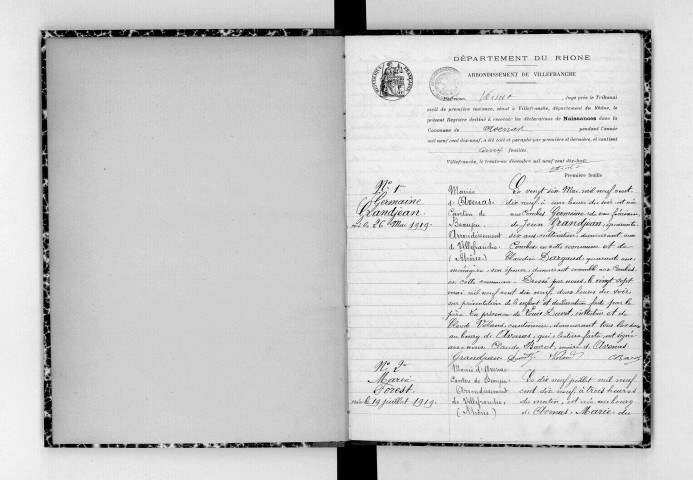 DÉPARTEMENT DU RHÔNE
ARRONDISSEMENT DE VILLEFRANCHE
Par nous, , Juge près le Tribunal
civil de première instance, séant à Villefranche, département du Rhône, le
présent Registre destiné à recevoir les déclarations de Naissances dans la
Commune de Avenas pendant l'année
mil neuf cent dix-neuf, a été coté et paraphé par première et dernière, et contient
feuilles.
Villefranche, le trente-un décembre mil neuf cent dix-huit
Première feuille
No 1
Germaine
Grandjean
née le 26 Mai 1919.
Mairie
d'Avenas
Canton de
Beaujeu
Arrondissement
de Villefranche
(Rhône)
Le vingt six Mai mil neuf cent
dix neuf à une heure du soir est née
aux Combes Germaine de sexe féminin
de Jean Grandjean, quarante
six ans cultivateur, demeurant aux
Combes en cette commune et de
Claudine Dargaud quarante ans
ménagère, son épouse, demeurant ensemble aux Combes
en cette commune. Dressé par nous, le vingt sept
mai mil neuf cent dix neuf, deux heures du soir,
sur présentation de l'enfant et déclaration faite par le
père. En présence de Louis Duvet, instituteur et de
Claude Voland, cantonnier, demeurant tous les deux
au bourg de Avenas, qui, lecture faite, ont signé
avec nous Claude maire d'Avenas
Grandjean Voland
No 2
Marie
Forest
née le 19 juillet 1919.
Mairie d'Avenas
Canton de Beaujeu
Arrondissement
de Villefranche
(Rhône)
Le dix neuf juillet mil neuf
cent dix neuf, à trois heures
du matin, est née au bourg
de Avenas, Marie de